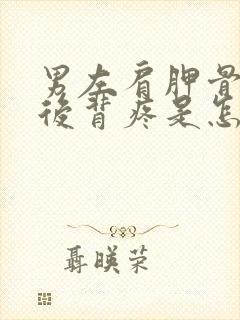 男左肩胛骨
後背疼是怎
聶暎荣